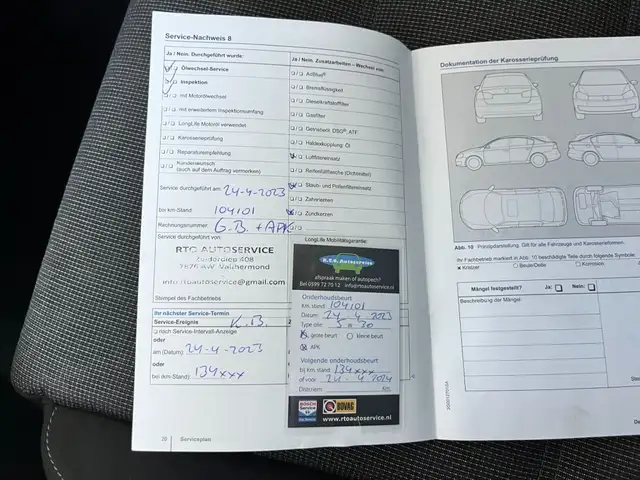 Service-Nachweis 8
Ja / Nein. Durchgeführt wurde:
Ölwechsel-Service
Inspektion
mit Motorölwechsel
mit erweitertem Inspektionsumfang
LongLife Motoröl verwendet
Karosserieprüfung
Reparaturempfehlung
Kundenwunsch
(auch auf dem Auftrag vermerken)
Service durchgeführt am: 24-4-2023
bei km-Stand: 104101
Rechnungsnummer: G.B. + APK
Service durchgeführt von:
RTO AUTOSERVICE
Zuiderdiep 408
Valthermond
info rtoautoservice.nl
Stempel des Fachbetriebs
Ihr nächster Service-Termin
Service-Ereignis K.B.
nach Service-Intervall-Anzeige
oder
am (Datum): 24-4-2023
oder
bei (km-Stand): 134xxx
20 Serviceplan
Ja / Nein. Zusatzarbeiten – Wechsel von:
AdBlue®
Bremsflüssigkeit
Dieselkraftstofffilter
Gasfilter
Getriebeöl DSG®, ATF
Haldexkupplung: Öl
Luftfiltereinsatz
Reifenfüllflasche (Dichtmittel)
Staub- und Pollenfiltereinsatz
Zahnriemen
Zündkerzen
LongLife Mobilitätsgarantie:
R.T.O. Autoservice
afspraak maken of autopech?
Bel 0599 72 70 12 info@rtoautoservice.nl
Onderhoudsbeurt
Km. stand: 104101
Datum: 24-4 2023
Type olie: 5 w 30
grote beurt kleine beurt
APK
Volgende onderhoudsbeurt
bij km. stand: 134xxx
of voor 24-4-2024
Distr.riem: Km.
BOSCH
BOVAG
www.rtoautoservice.nl
Dokumentation der Karosserieprüfung
Abb. 10 Prinzipdarstellung. Gilt für alle Fahrzeuge und Karosserieformen.
Ihr Fachbetrieb markiert in Abb. 10 beschädigte Teile durch folgende Symbole:
Kratzer Beule/Delle Korrosion
Mängel festgestellt? Ja: Nein:
Beschreibung der Mängel: